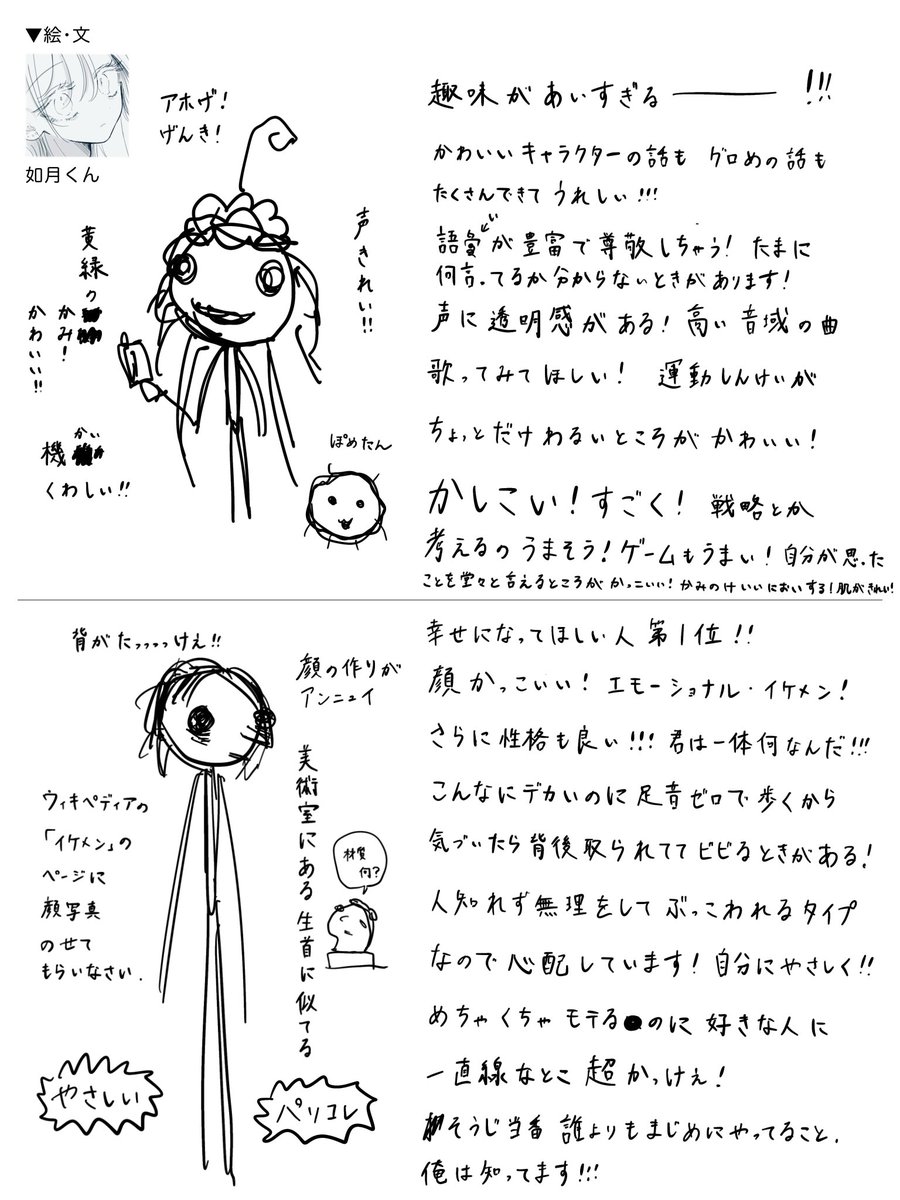 ▼絵・文
如月くん
アホゲ!
げんき!
声きれい!!
黄緑の
かみ!
かわいい!!
機かい
くわしい!!
ぽめたん
趣味があいすぎる――!!!
かわいいキャラクターの話も グロめの話も
たくさんできて うれしい!!!
語彙が豊富で尊敬しちゃう! たまに
何言ってるか分からないときがあります!
声に透明感がある! 高い音域の曲
歌ってみてほしい! 運動しんけいが
ちょっとだけわるいところが かわいい!
かしこい!すごく! 戦略とか
考えるの うまそう! ゲームもうまい! 自分が思った
ことを堂々と言えるところが かっこいい! かみのけ いいにおいする! 肌がきれい!
背がたっっっっけえ!!
顔の作りが
アンニュイ
美術室にある生首に似てる
材質
何?
ウィキペディアの
「イケメン」の
ページに
顔写真
のせて
もらいなさい.
やさしい
パリコレ
幸せになってほしい人 第1位!!
顔かっこいい! エモーショナル・イケメン!
さらに性格も良い!!! 君は一体何なんだ!!!
こんなにデカいのに足音ゼロで歩くから
気づいたら背後取られててビビるときがある!
人知れず無理をして ぶっこわれるタイプ
なので心配しています! 自分にやさしく!!
めちゃくちゃモテるのに 好きな人に
一直線なとこ 超かっけえ!
そうじ当番 誰よりもまじめにやってること.
俺は知ってます!!!